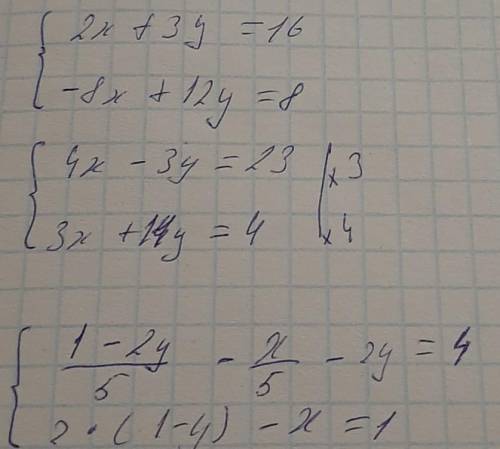 2x + 3y = 16
-8x + 12y = 8
4x - 3y = 23 | x 3
3x + 14y = 4 | x 4
(1 - 2y)/5 - x/5 - 2y = 4
2 · (1-y) - x = 1